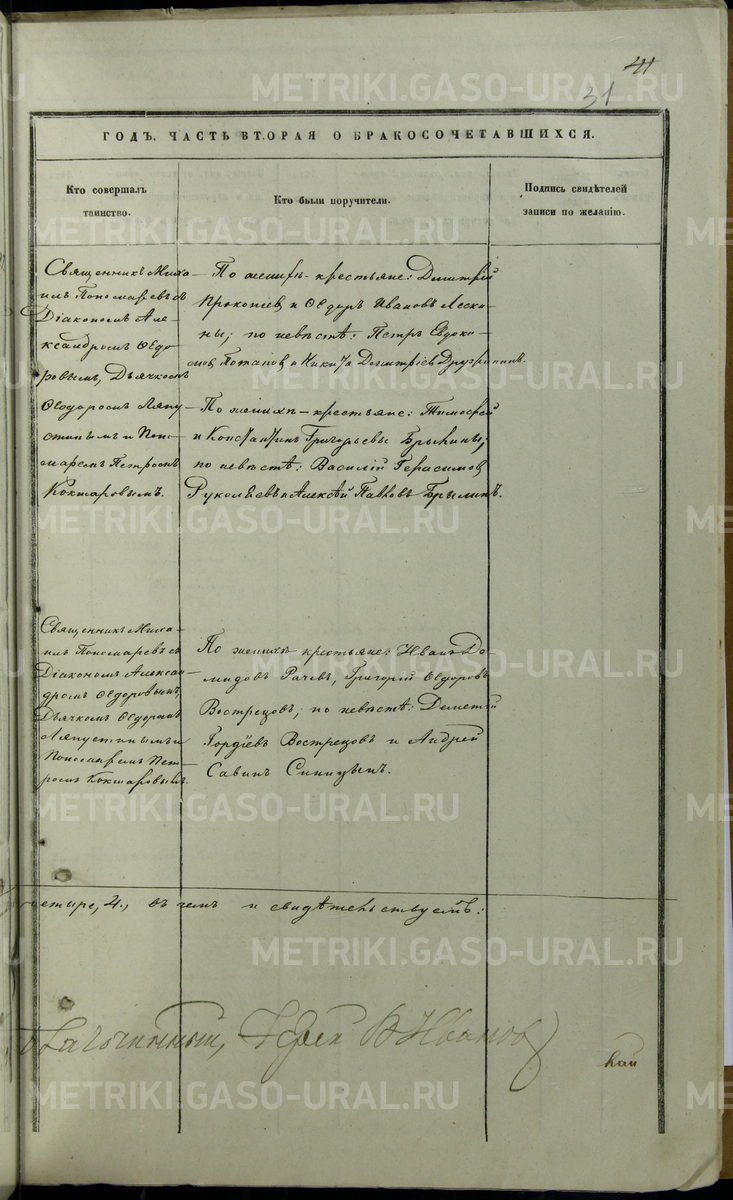 41
31
ГОДЪ, ЧАСТЬ ВТОРАЯ О БРАКОСОЧЕТАВШИХСЯ.
Кто совершалъ
таинство.
Кто были поручители.
Подпись свидѣтелей
записи по желанію.
Священникъ Миха-
илъ Пономаревъ съ
Діакономъ Але-
ксандромъ Ѳедо-
ровымъ, Дьячкомъ
Ѳеодоромъ Ляпу-
стинымъ и Поно-
маремъ Петромъ
Кокшаровымъ.
По женихѣ - крестьяне: Димитрій
Прокопіев и Ѳедоръ Ивановъ Лески-
ны; по невѣстѣ: Петръ Евдоки-
мов Потапов и Никита Димитріев
По женихѣ - крестьяне: Тимофей
и Константинъ Григорьевы Брылины;
по невѣстѣ: Василій Герасимов
Алексѣй Павловъ Брылинъ.
Священникъ Миха-
илъ Пономаревъ съ
Діакономъ Алексан-
дромъ Ѳедоровымъ,
Дьячкомъ Ѳедоромъ
Ляпустинымъ и
Пономаремъ Пет-
ромъ Кокшаровымъ.
По женихѣ крестьяне: Иванъ До-
мидовъ Рачевъ, Григорій Ѳедоровъ
Вострецовъ; по невѣстѣ: Дементій
Гордѣевъ Вострецовъ и Андрей
Савинъ Синицынъ.
четыре, 4., въ чемъ и свидѣтельствуемъ:
Благочинный, Іерей В Иванов
METRIKI.GASO-URAL.RU